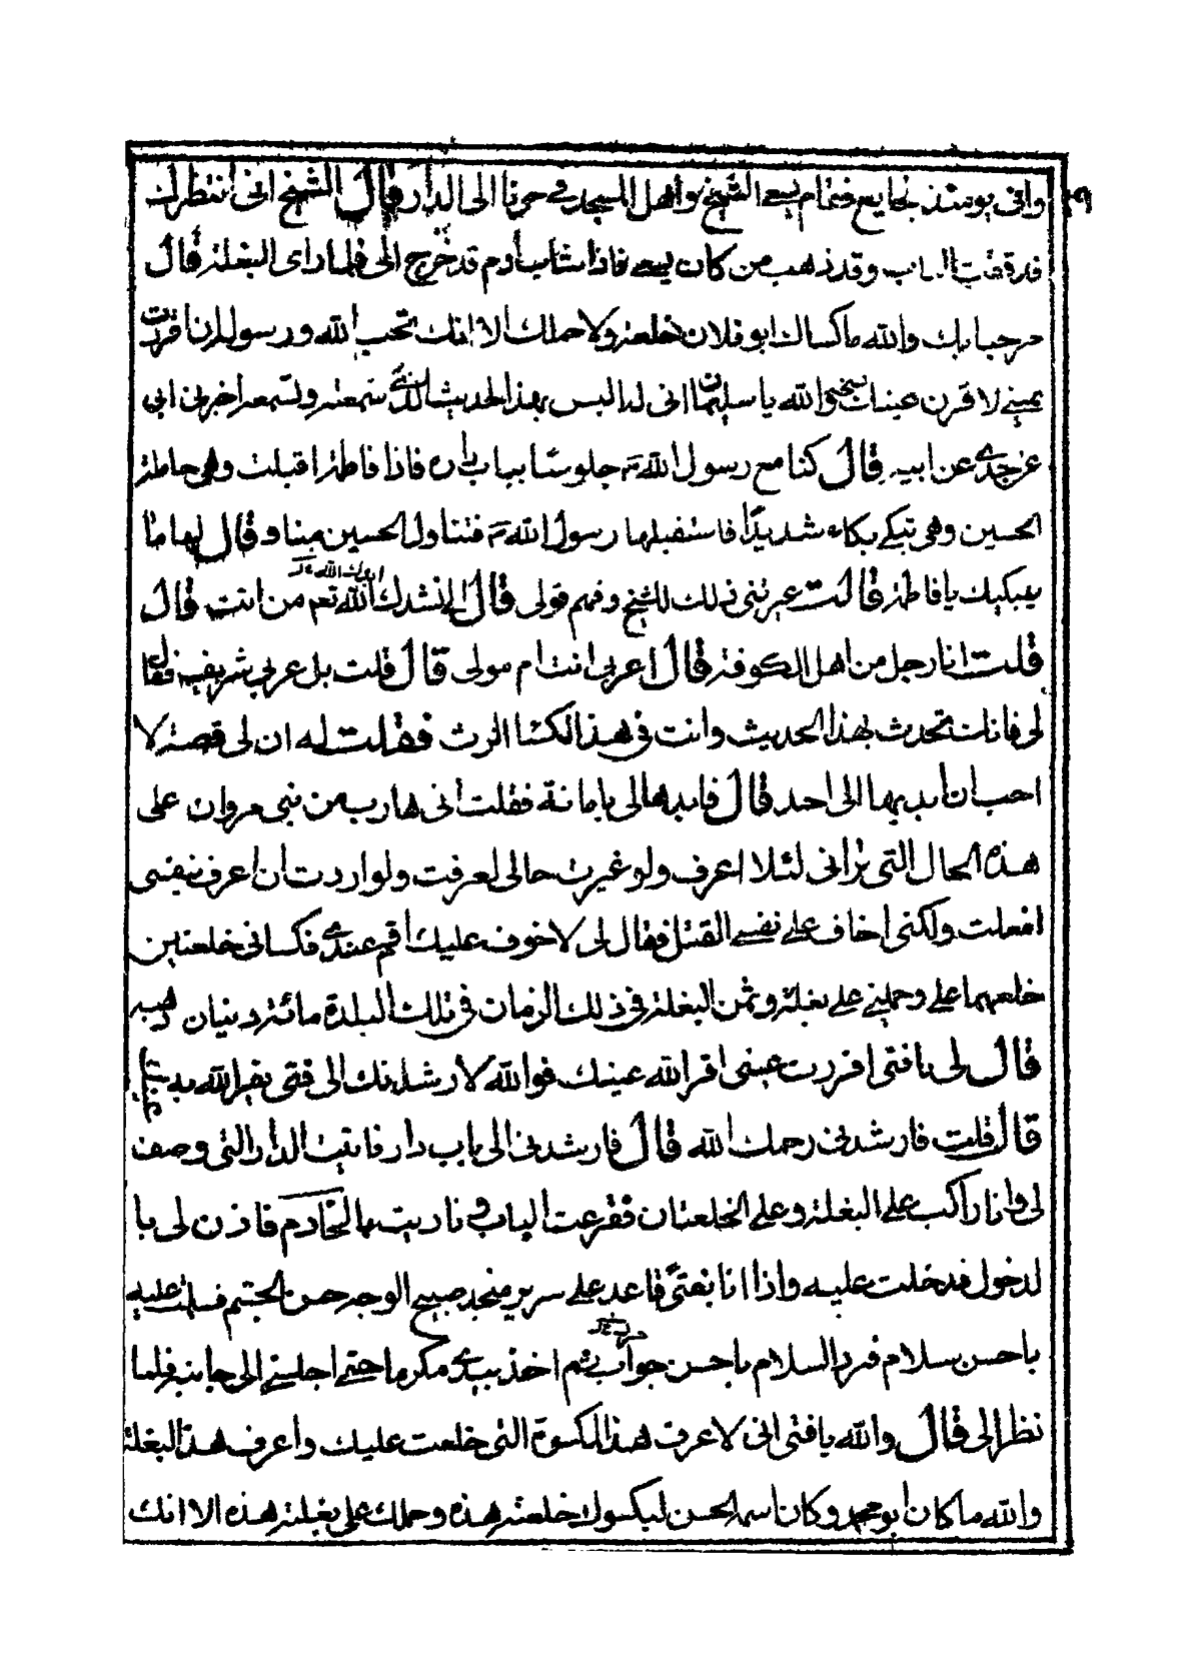 واني يومئذ لجايع فقام يسعى الشيخ واهل المسجد في حرنا الى الدار فقال الشيخ اني انتظرك
فدققت الباب وقد ذهب من كان يسعى فاذا شاب ادم قد خرج الى فلما راى البغلة قال
مرحبا بك والله ما كساك ابو فلان خلعته ولا حملك الا انك تحب الله ورسوله لان اقررت
عيني لاقرن عينك والله يا سليمان اني لا لبس بهذا الحديث الذي سمعته وتسمعه اخبرني ابي
عن جدي عن ابيه قال كنا مع رسول الله جلوسا بباب داره فاذا فاطمة اقبلت وهي حاملة
الحسين وهي تبكي بكاء شديدا فاستقبلها رسول الله فتناول الحسين منها وقال لها ما
يبكيك يا فاطمة قالت عيرتني ذلك للشيخ وفهم قولي قال انشدك الله نعم من انت قال
قلت انا رجل من اهل الكوفة قال اعربي انت ام مولى قال قلت بل عربي شريف فقال
لي فانك تحدث بهذا الحديث وانت في هذا الكسا الرث فقلت له ان لي قصة لا
احب ان ابديها الى احد قال فابدها لي بامانة فقلت اني هارب من بني مروان على
هذه الحال التي تراني لئلا اعرف ولو غيرت حالي لعرفت ولو اردت ان اعرف نفسي
لفعلت ولكني اخاف على نفسي القتل فقال لي لا خوف عليك اقم عندي فكساني خلعتين
خلعهما علي وحملني على بغلة وثمن البغلة في ذلك الزمان في تلك البلدة مائة دينار
قال لي يا فتى اقررت عيني اقر الله عينك فوالله لارشدنك الى فتى يقر الله به
قال قلت فارشدني رحمك الله قال فارشدني الى باب دار فاتيت الدار التي وصف
لي وانا راكب على البغلة وعلي الخلعتان فقرعت الباب وناديت بالخادم فاذن لي با
لدخول فدخلت عليه واذا انا بفتى قاعد على سرير منجد صبيح الوجه حسن الجسم فسلمت عليه
باحسن سلام فرد السلام باحسن جواب ثم اخذ بيدي مكرما حتى اجلسني الى جانبه فلما
نظر الى قال والله يا فتى اني لاعرف هذه الكسوة التي خلعت عليك واعرف هذه البغلة
والله ما كان ابو محمد وكان اسمه الحسن ليكسوك خلعته هذه وحملك على بغلته هذه الا انك